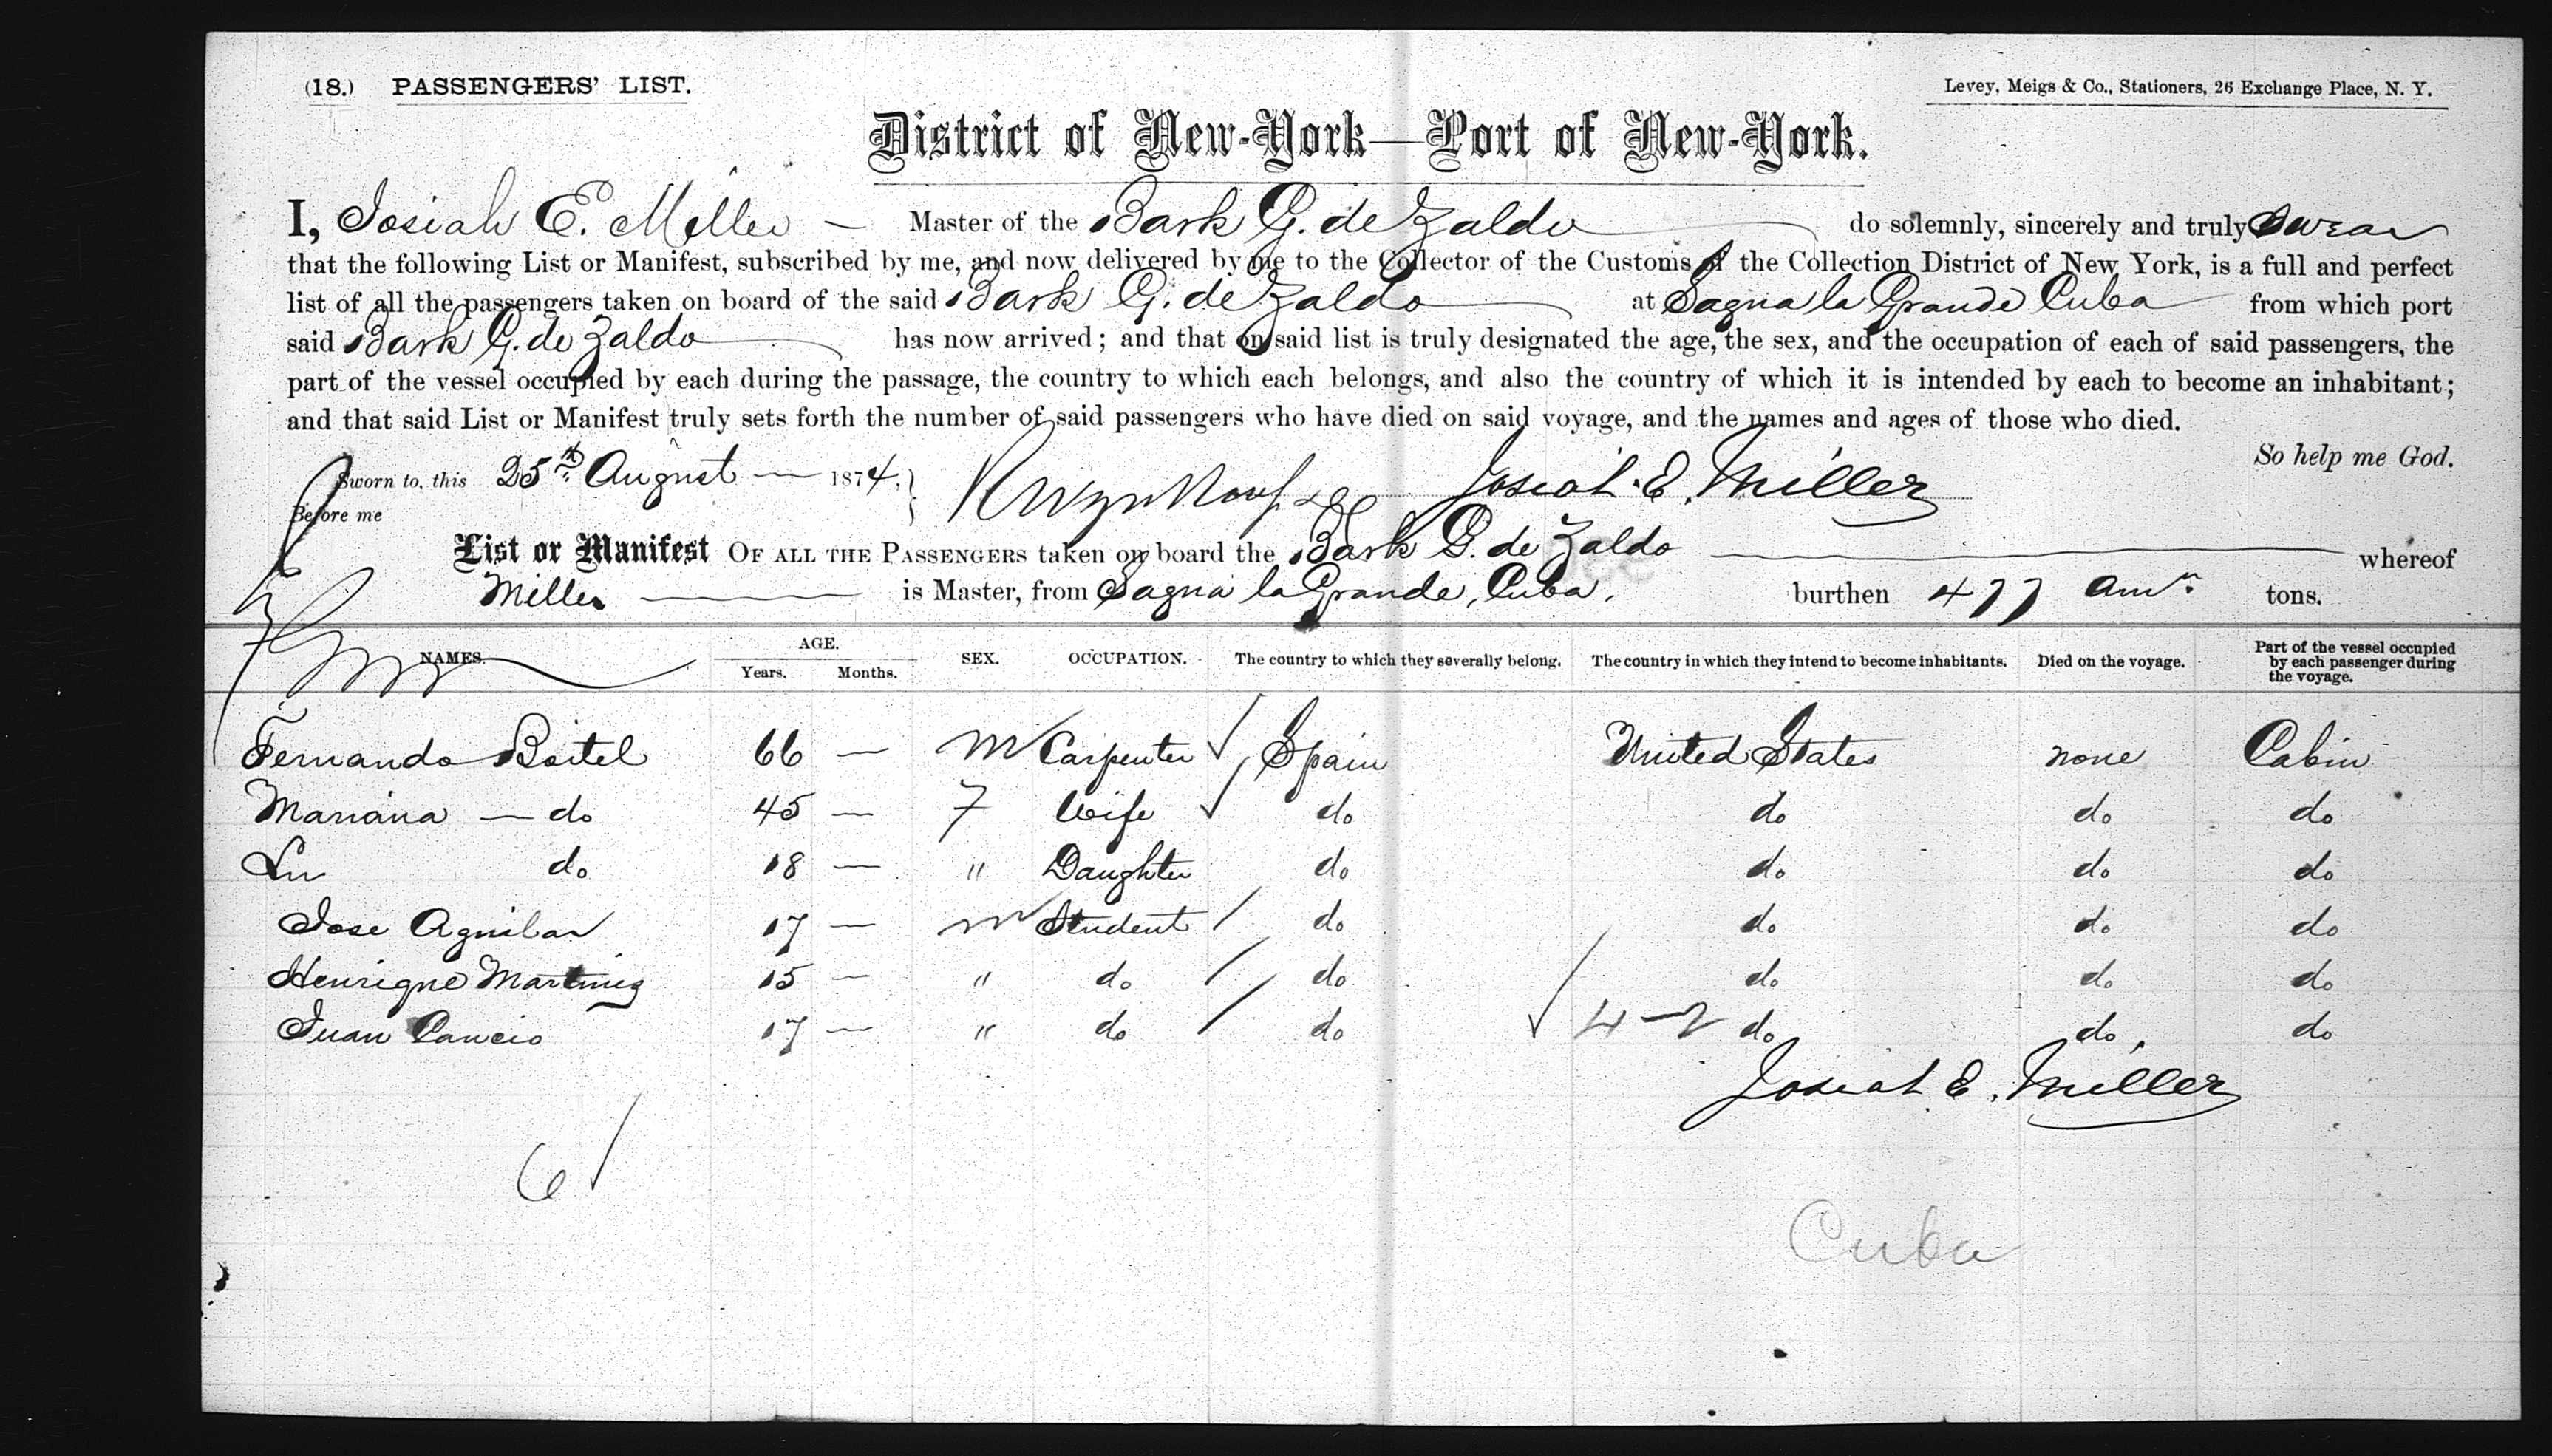 (18.) PASSENGERS' LIST. Levey, Meigs & Co., Stationers, 26 Exchange Place, N. Y.
District of New-York—Port of New-York.
I, Josiah E. Miller — Master of the Bark G. de Zaldo do solemnly, sincerely and truly swear
that the following List or Manifest, subscribed by me, and now delivered by me to the Collector of the Customs of the Collection District of New York, is a full and perfect
list of all the passengers taken on board of the said Bark G. de Zaldo at Sagua la Grande Cuba from which port
said Bark G. de Zaldo has now arrived; and that on said list is truly designated the age, the sex, and the occupation of each of said passengers, the
part of the vessel occupied by each during the passage, the country to which each belongs, and also the country of which it is intended by each to become an inhabitant;
and that said List or Manifest truly sets forth the number of said passengers who have died on said voyage, and the names and ages of those who died.
So help me God.
Sworn to, this 25th August — 1874. Josiah E. Miller
Before me
List or Manifest OF ALL THE PASSENGERS taken on board the Bark G. de Zaldo — whereof
Miller — is Master, from Sagua la Grande, Cuba. burthen 477 Amn. tons.
NAMES. AGE. Years. Months. SEX. OCCUPATION. The country to which they severally belong. The country in which they intend to become inhabitants. Died on the voyage. Part of the vessel occupied by each passenger during the voyage.
Fernando Boitel 66 — M Carpenter Spain United States none Cabin
Mariana — do 45 — F Wife do do do do
Lu do 18 — " Daughter do do do do
Jose Aguilar 17 — M Student do do do do
Henrique Martinez 15 — " do do do do do
Juan Cancio 17 — " do do 4-2 do do do
Josiah E. Miller
6
Cuba